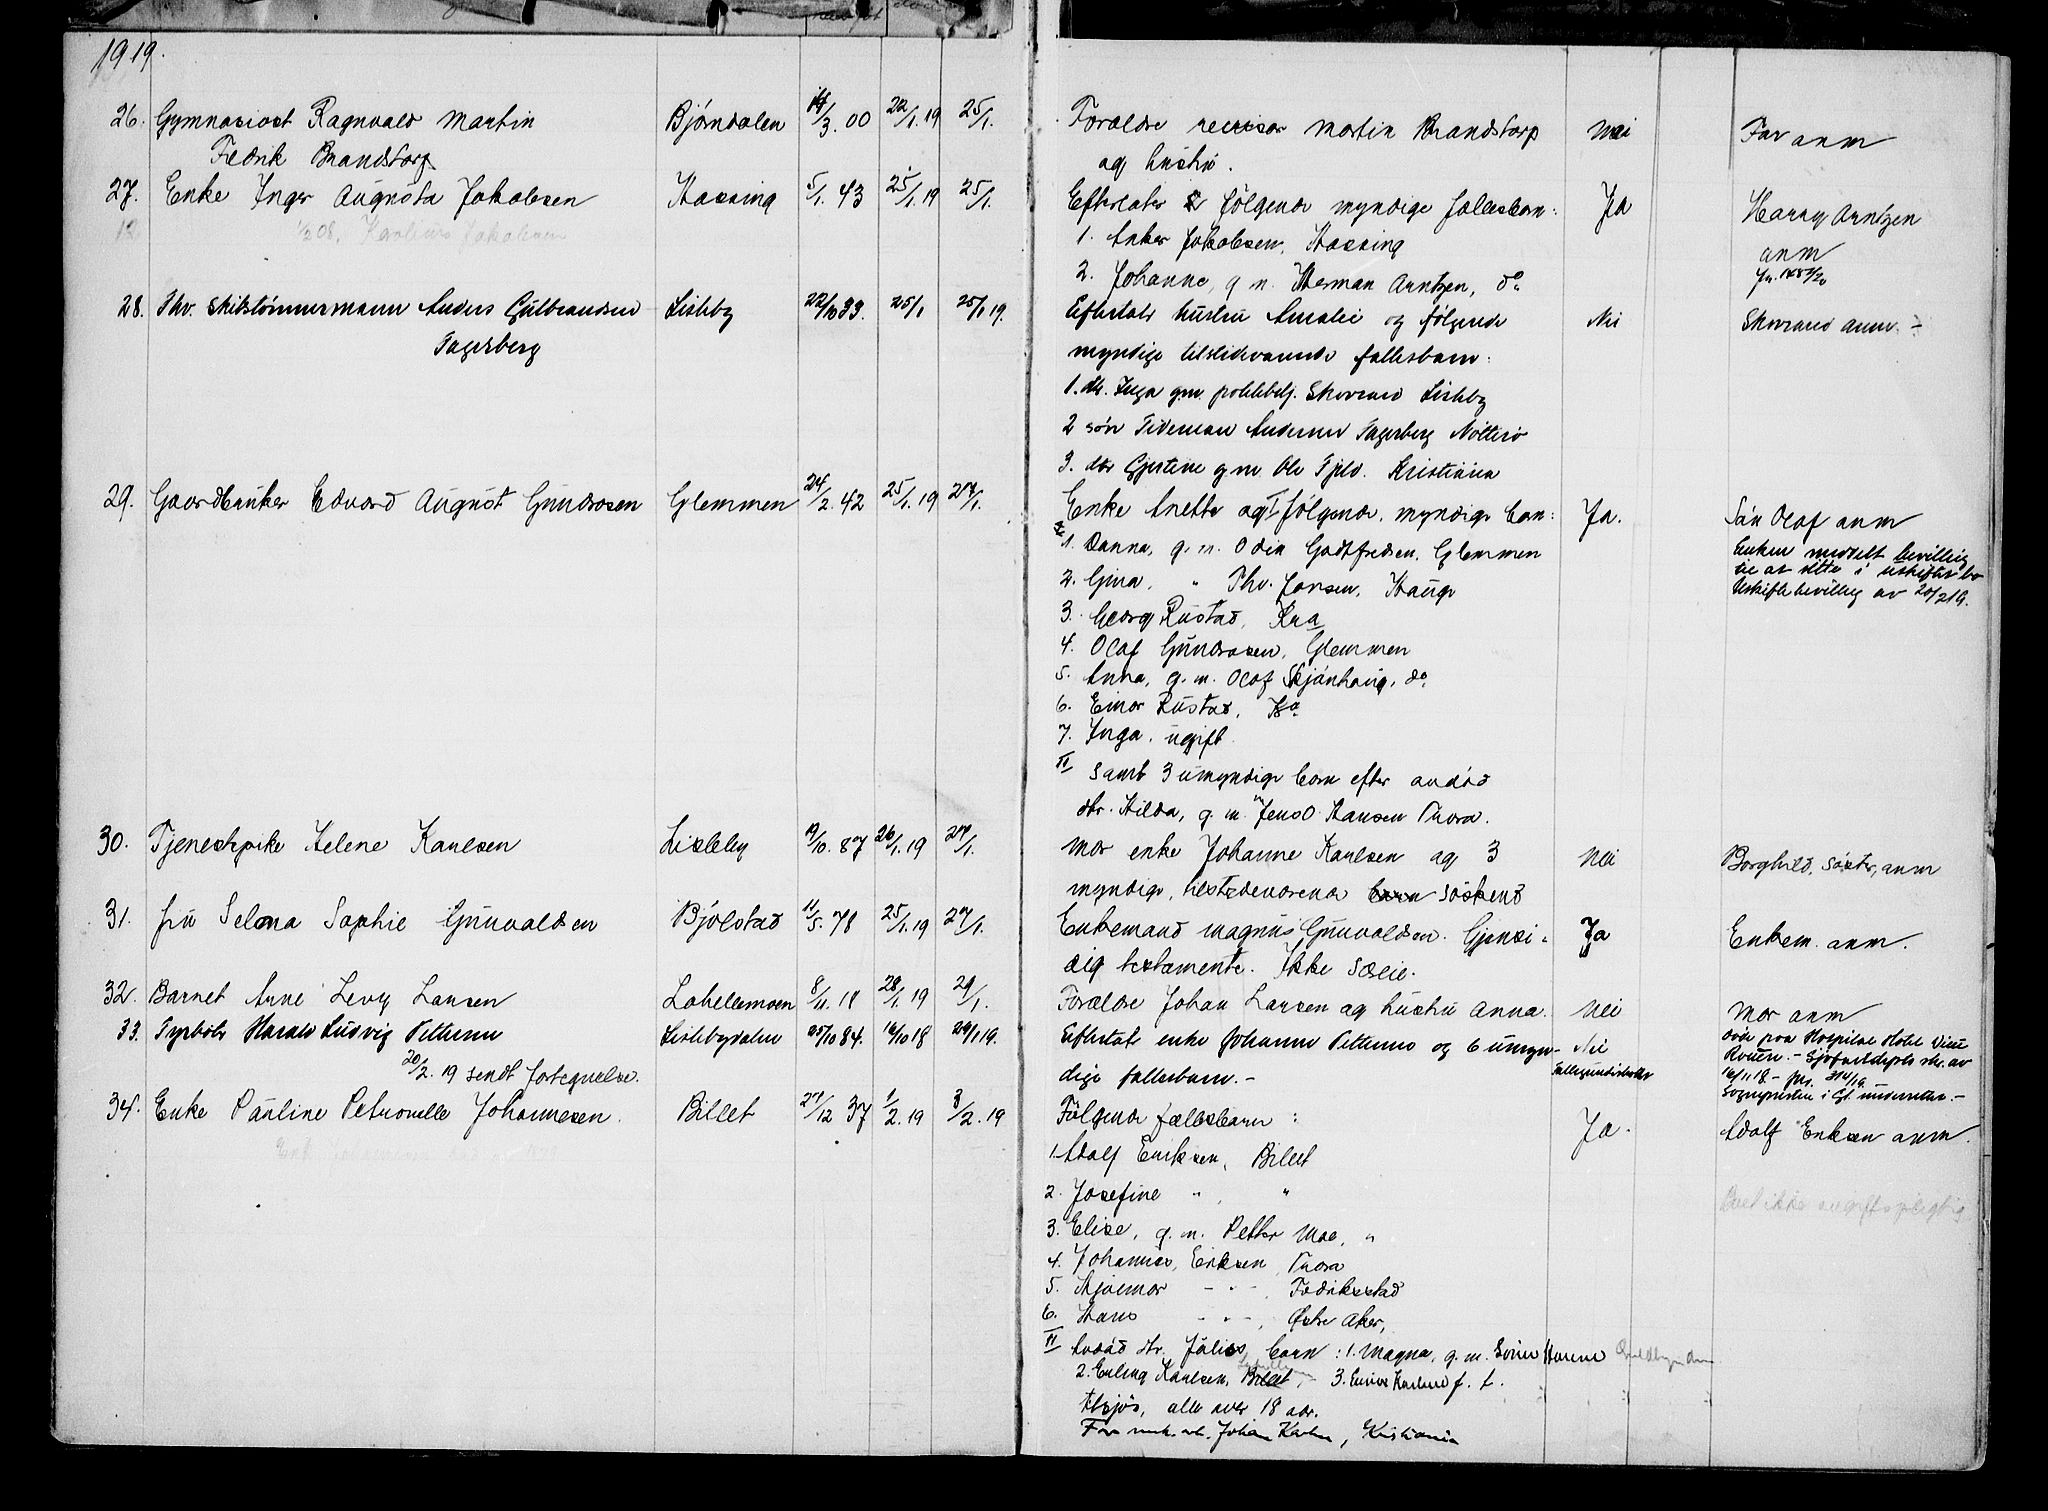 1919.
26. Gymnasiast Ragnvald Martin Bjørndalen 14/3.00 22/1.19 25/1. Forældre revisor Martin Brandstorp Nei Far anm
Fredrik Brandstorp og hustru.
27. Enke Inger Augusta Jakobsen Hassing 5/1.43 25/1.19 25/1. Efterlater følgende myndige fællesbarn: Ja Harry Arntzen
12 1/2 08. Jakobsen 1. Anker Jakobsen, Hassing anm
2. Johanne, g.m. Herman Arntzen, do
28. Fhv. skibstømmermann Anders Gulbrandsen Lisleby 22/10 33. 25/1 25/1 19. Efterlatt hustru Amalie og følgende Nei Skovrand anm.
Tagesberg myndige tilstedeværende fællesbarn:
1. dtr. Inga g.m. politibetj. Skovrand Lisleby
2 søn Tideman Andersen Tagesberg Nøtterø
3. dtr Gjertine g.m. Ole Fjeld. Kristiania
29. Gaardbruker Edvard August Gundrosen Glemmen 24/2.42 25/1.19 27/1. Enke Anette og I følgende myndige barn: Ja. Søn Olaf anm
1. Danna, g.m. Odin Godtfredsen, Glemmen Enken meddelt bevilling
2. Gina, " Thv. Jansen, Hauge til at sitte i uskiftet bo
3. Georg Rustad, Kra Uskiftebevilling av 20/2 19.
4. Olaf Gundrosen, Glemmen
5. Anna, g.m. Olaf Skjønhaug, do.
6. Einar Rustad, Kra
7. Inga, ugift
II samt 3 umyndige barn efter avdød
dtr. Hilda, g.m. Jens O. Hansen Thora.
30. Tjenestepike Helene Karlsen Lisleby 19/10.87 26/1.19 27/1. Mor enke Johanne Karlsen og 3 Nei Borghild, søster, anm
myndige, tilstedeværende barn søskend
31. Fru Selma Sophie Gunvaldsen Bjølstad 11/5.78 25/1.19 27/1. Enkemand Magnus Gunvaldsen. Gjensi- Ja Enkem. anm.
dig testamente. Ikke sæeie.
32. Barnet Anne Levy Larsen Labellemoen 8/11.18 28/1.19 29/1. Forældre Johan Larsen og hustru Anna. Nei Mor anm
33. Fyrbøter Harald Ludvig Pettersen Lislebydalen 25/10 84. 16/10 18 29/1 19. Efterlatt enke Johanne Pettersen og 6 umyn- Nei døde paa Hospital Hotel Dieu
20/2.19 sendt fortegnelse. dige fællesbarn.- Rouen. - Sjøfartsdepts skr. av
16/11 18 - jnr. 314/19
34. Enke Pauline Petronelle Johannesen. Billet 27/12 37 1/2.19 3/2.19 Følgende fællesbarn: Ja. Adolf Eriksen anm.
1. Adolf Eriksen, Billet
2. Josefine " "
3. Elise, g.m. Petter Moe, "
4. Johannes, Eriksen, Thora
5. Hjalmar - " - , Fredriksstad
6. Hans - " - , Østre Aker,
II Avdød dtr. Julies barn: 1. Magna, g.m. Søren Hansen
2. Erling Karlsen, Billet, - 3. Karlsen f. t.
tilsjøs, alle over 18 aar.
Far Johan Karlsen, Kristiania